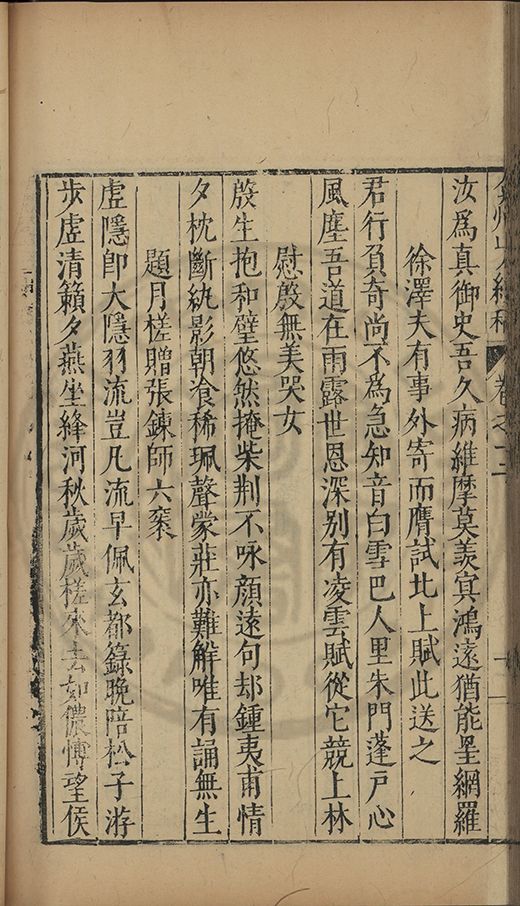 弇州山人續稿 卷之
汝為真御史吾久病維摩莫羨冥鴻遠猶能罣網羅
徐澤夫有事外寄而膺試北上賦此送之
君行負奇尚不為急知音白雪巴人里朱門蓬戶心
風塵吾道在雨露世恩深別有凌雲賦從它競上林
慰殷無美哭女
殷生抱和璧悠然掩柴荆不咏顏遠句却鍾夷甫情
夕枕斷紈影朝飡稀珮聲蒙莊亦難解唯有誦無生
題月槎贈張鍊師六袠
虛隱卽大隱羽流豈凡流早佩玄都籙晚陪松子游
步虛清籟夕燕坐絳河秋歲歲槎來去如儂愽望侯